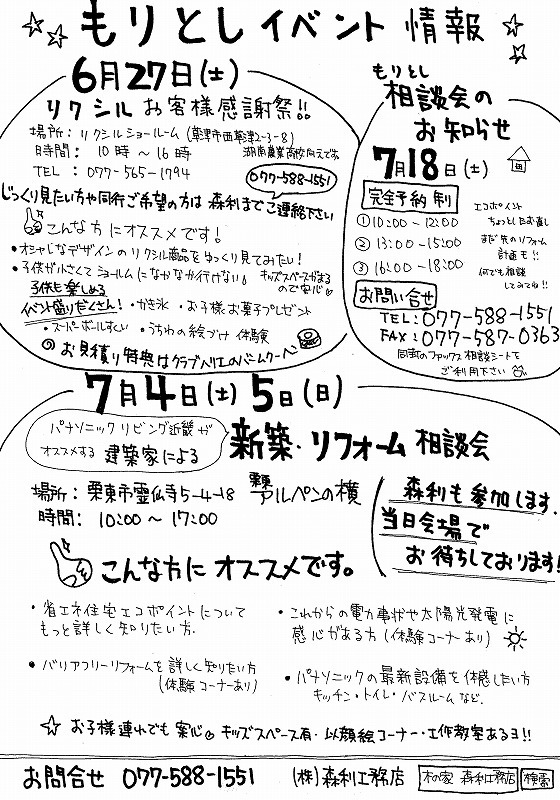 もりとしイベント情報
6月27日(土)
リクシルお客様感謝祭!!
場所:リクシルショールーム(草津市西草津2-3-8)
時間:10時〜16時 湖南農業高校向えです
TEL:077-565-1794
077-588-1551
じっくり見たい方や同行ご希望の方は森利までご連絡下さい
こんな方にオススメです!
・オシャレなデザインのリクシル商品をゆっくり見てみたい!
・子供が小さくてショールームになかなか行けない! キッズスペースがあるので安心
子供も楽しめる
イベント盛りだくさん!・かき氷・お子様お菓子プレゼント
・スーパーボールすくい・うちわの絵づけ体験
◎お見積り特典はクラブハリエのバームクーヘン
もりとし
相談会の
お知らせ
7月18日(土)
完全予約制
①10:00-12:00
②13:00-15:00
③16:00-18:00
エコポイント
ちょっとした直し
まだ先のリフォーム
計画も!!
何でも相談
してみてね!!
お問い合せ
TEL:077-588-1551
FAX:077-587-0363
同封のファックス相談シートを
ご利用下さい
7月4日(土)5日(日)
パナソニックリビング近畿が
オススメする建築家による
新築・リフォーム相談会
場所:栗東市霊仙寺5-4-18 栗東アルペンの横
時間:10:00〜17:00
森利も参加します.
当日会場で
お待ちしております!!
こんな方にオススメです。
・省エネ住宅エコポイントについて
もっと詳しく知りたい方.
・バリアフリーリフォームを詳しく知りたい方
(体験コーナーあり)
・これからの電力事状や太陽光発電に
感心がある方(体験コーナーあり)
・パナソニックの最新設備を体感したい方
キッチン・トイレ・バスルームなど.
☆お子様連れでも安心 キッズスペース有・似顔絵コーナー・工作教室あるヨ!!
お問合せ 077-588-1551 (株)森利工務店 木の家 森利工務店 検索